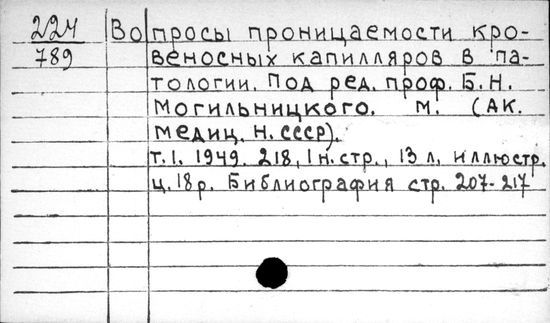 224
789
Вопросы проницаемости кро-
веносных капилляров в па-
тологии. Под ред. проф. Б.Н.
Могильницкого. М. (Ак.
медиц. Н. СССР).
т.1. 1949. 218, 1 н. стр., 13 л. иллюстр.
ц. 18 р. Библиография стр. 207-217